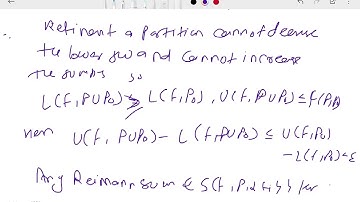 Refinent a partition cannot decrese
the lower sum and cannot increase
the sumps so
L(f, P∪P₀) ≥ L(f, P₀), U(f, P∪P₀) ≤ f(P, P₀)
hen U(f, P∪P₀) - L(f, P∪P₀) ≤ U(f, P₀)
- L(f, P₀) < ε
Any Reimann sum ∈ S(f, P,